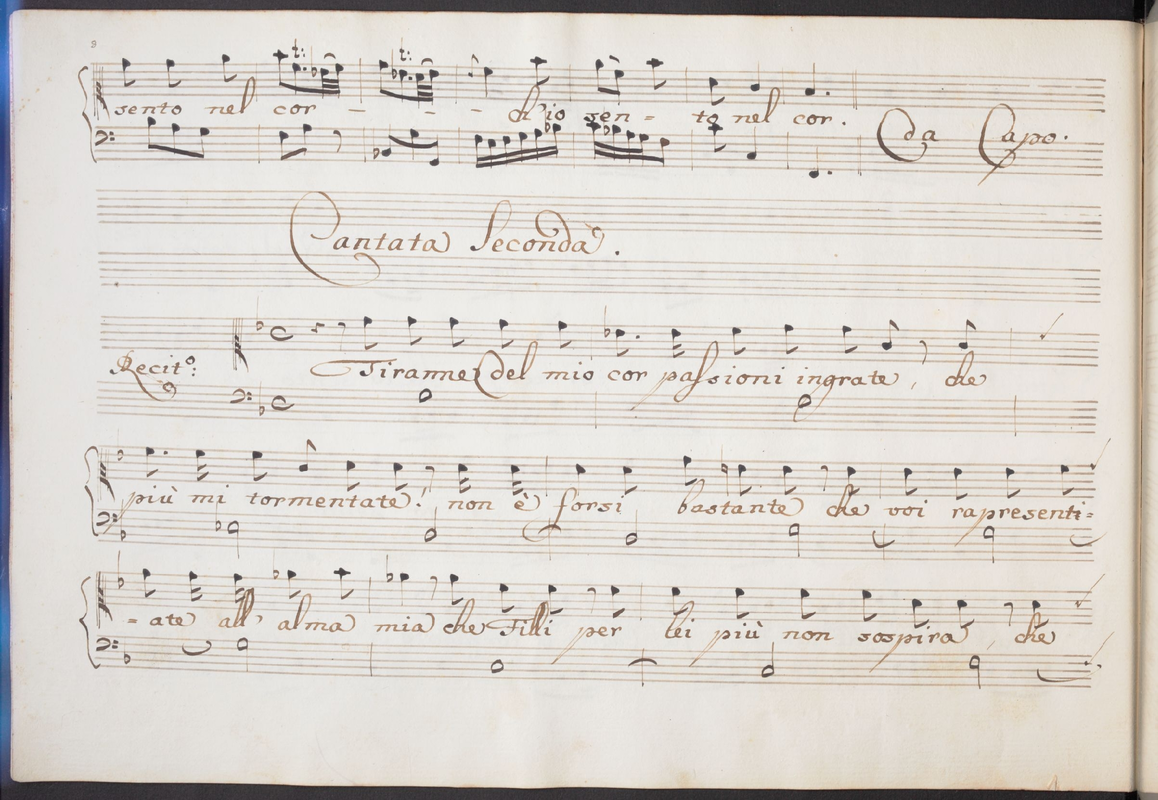 3
t: t:
sento nel cor - - - - ch'io sen- = to nel cor.
Da Capo.
Cantata Seconda.
Recit.º:
Tiranne del mio cor passioni ingrate, che
più mi tormentate! non è forsi bastante che voi rapresenti=
=ate all' alma mia che Filli per lei più non sospira, che